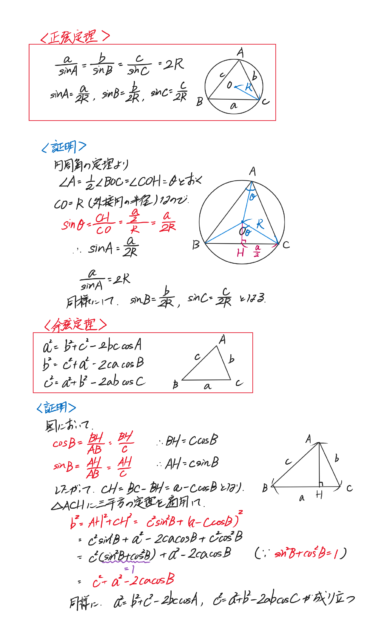 <正弦定理>
a/sinA = b/sinB = c/sinC = 2R
sinA = a/2R, sinB = b/2R, sinC = c/2R
A
c
b
O
R
B
a
C
<証明>
円周角の定理より
∠A = 1/2∠BOC = ∠COH = θとおく
CO = R (外接円の半径)なので
sinθ = CH/CO = (a/2)/R = a/2R
∴ sinA = a/2R
a/sinA = 2R
同様にして. sinB = b/2R, sinC = c/2R となる.
A
θ
O
R
θ
B
H
a/2
C
<余弦定理>
a² = b² + c² - 2bccosA
b² = c² + a² - 2cacosB
c² = a² + b² - 2abcosC
A
c
b
B
a
C
<証明>
図において.
cosB = BH/AB = BH/c ∴ BH = ccosB
sinB = AH/AB = AH/c ∴ AH = csinB
したがって. CH = BC - BH = a - ccosBとなり.
△ACHに三平方の定理を適用して.
b² = AH² + CH² = c²sin²B + (a - ccosB)²
= c²sin²B + a² - 2cacosB + c²cos²B
= c²(sin²B + cos²B) + a² - 2cacosB (∵ sin²B + cos²B = 1)
= 1
= c² - a² - 2cacosB
同様に. a² = b² + c² - 2bccosA, c² = a² + b² - 2abcosC が成り立つ
A
c
b
B
a
H
C